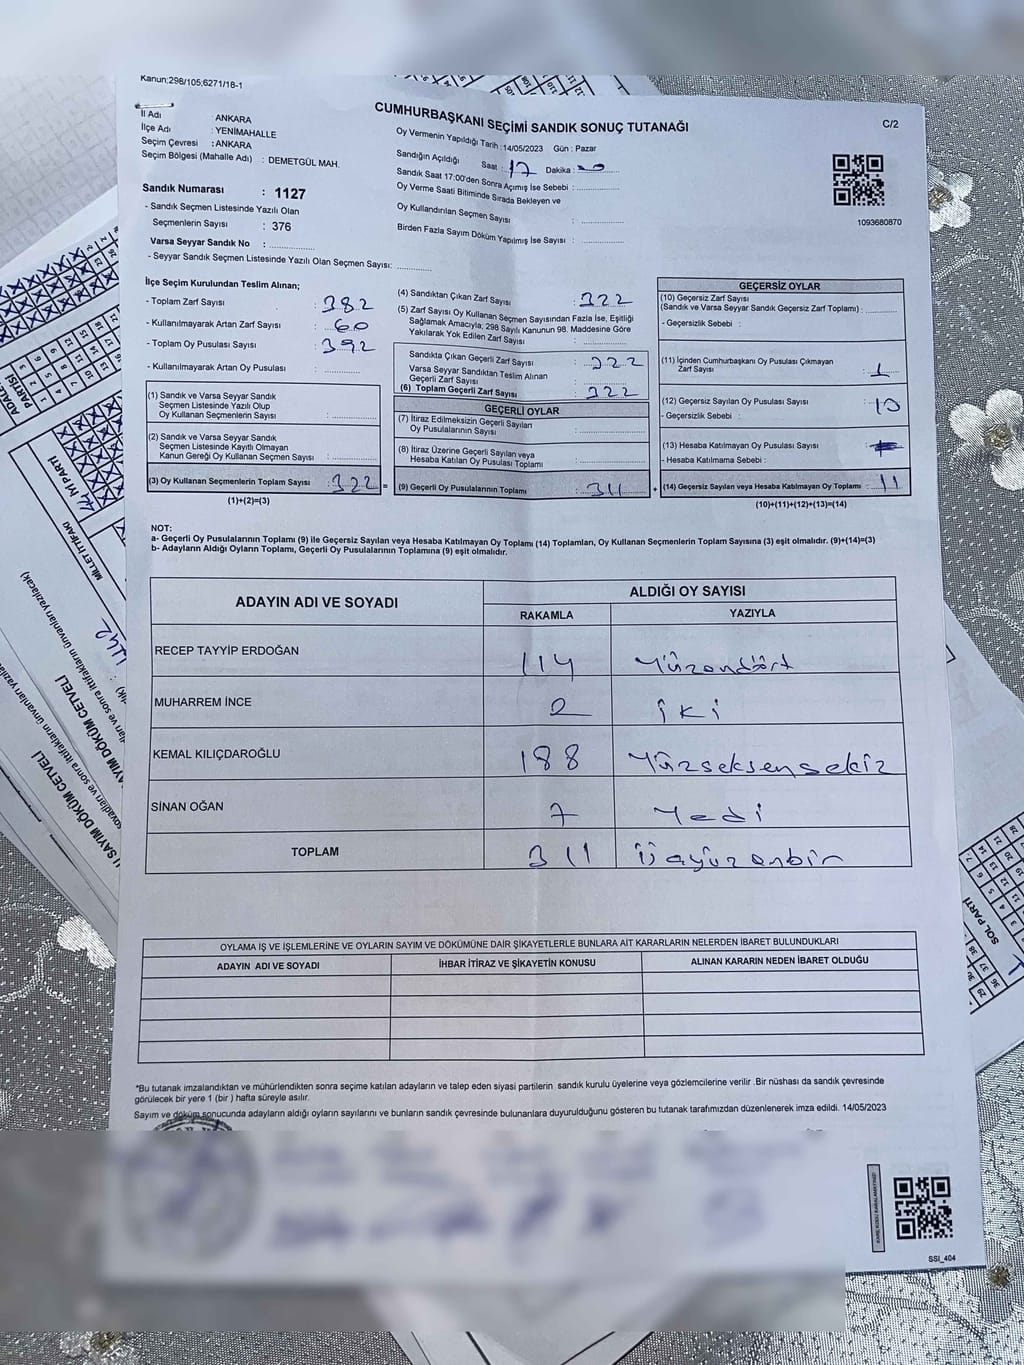 Kanun;298/105;6271/18-1
CUMHURBAŞKANI SEÇİMİ SANDIK SONUÇ TUTANAĞI
C/2
İl Adı ANKARA
İlçe Adı : YENİMAHALLE
Seçim Çevresi : ANKARA
Seçim Bölgesi (Mahalle Adı) : DEMETGÜL MAH.
Sandık Numarası : 1127
- Sandık Seçmen Listesinde Yazılı Olan
Seçmenlerin Sayısı : 376
Varsa Seyyar Sandık No : ..............
- Seyyar Sandık Seçmen Listesinde Yazılı Olan Seçmen Sayısı: ............
Oy Vermenin Yapıldığı Tarih : 14/05/2023 Gün : Pazar
Sandığın Açıldığı Saat : 17 Dakika :
Sandık Saat 17:00'den Sonra Açımış İse Sebebi : ..............
Oy Verme Saati Bitiminde Sırada Bekleyen ve
Oy Kullandırılan Seçmen Sayısı : ..............
Birden Fazla Sayım Döküm Yapılmış İse Sayısı : ..............
1093680870
İlçe Seçim Kurulundan Teslim Alınan;
- Toplam Zarf Sayısı : 382
- Kullanılmayarak Artan Zarf Sayısı : 60
- Toplam Oy Pusulası Sayısı : 392
- Kullanılmayarak Artan Oy Pusulası : ..............
(1) Sandık ve Varsa Seyyar Sandık
Seçmen Listesinde Yazılı Olup
Oy Kullanan Seçmenlerin Sayısı : ..............
(2) Sandık ve Varsa Seyyar Sandık
Seçmen Listesinde Kayıtlı Olmayan
Kanun Gereği Oy Kullanan Seçmen Sayısı : ..............
(3) Oy Kullanan Seçmenlerin Toplam Sayısı : 322 =
(1)+(2)=(3)
(4) Sandıktan Çıkan Zarf Sayısı : 322
(5) Zarf Sayısı Oy Kullanan Seçmen Sayısından Fazla İse, Eşitliği
Sağlamak Amacıyla; 298 Sayılı Kanunun 98. Maddesine Göre
Yakılarak Yok Edilen Zarf Sayısı : ..............
Sandıkta Çıkan Geçerli Zarf Sayısı : 322
Varsa Seyyar Sandıktan Teslim Alınan
Geçerli Zarf Sayısı : ..............
(6) Toplam Geçerli Zarf Sayısı : 322
GEÇERLİ OYLAR
(7) İtiraz Edilmeksizin Geçerli Sayılan
Oy Pusulalarının Sayısı : ..............
(8) İtiraz Üzerine Geçerli Sayılan veya
Hesaba Katılan Oy Pusulası Toplamı : ..............
(9) Geçerli Oy Pusulalarının Toplamı : 311 +
GEÇERSİZ OYLAR
(10) Geçersiz Zarf Sayısı
(Sandık ve Varsa Seyyar Sandık Geçersiz Zarf Toplamı) : ..............
- Geçersizlik Sebebi :
(11) İçinden Cumhurbaşkanı Oy Pusulası Çıkmayan
Zarf Sayısı : 1
(12) Geçersiz Sayılan Oy Pusulası Sayısı : 10
- Geçersizlik Sebebi :
(13) Hesaba Katılmayan Oy Pusulası Sayısı :
- Hesaba Katılmama Sebebi :
(14) Geçersiz Sayılan veya Hesaba Katılmayan Oy Toplamı : 11
(10)+(11)+(12)+(13)=(14)
NOT:
a- Geçerli Oy Pusulalarının Toplamı (9) ile Geçersiz Sayılan veya Hesaba Katılmayan Oy Toplamı (14) Toplamları, Oy Kullanan Seçmenlerin Toplam Sayısına (3) eşit olmalıdır. (9)+(14)=(3)
b- Adayların Aldığı Oyların Toplamı, Geçerli Oy Pusulalarının Toplamına (9) eşit olmalıdır.
ADAYIN ADI VE SOYADI
ALDIĞI OY SAYISI
RAKAMLA YAZIYLA
RECEP TAYYİP ERDOĞAN 114 Yüzondört
MUHARREM İNCE 2 iki
KEMAL KILIÇDAROĞLU 188 Yüzseksensekiz
SİNAN OĞAN 7 Yedi
TOPLAM 311 Üçyüzonbir
OYLAMA İŞ VE İŞLEMLERİNE VE OYLARIN SAYIM VE DÖKÜMÜNE DAİR ŞİKAYETLERLE BUNLARA AİT KARARLARIN NELERDEN İBARET BULUNDUKLARI
ADAYIN ADI VE SOYADI İHBAR İTİRAZ VE ŞİKAYETİN KONUSU ALINAN KARARIN NEDEN İBARET OLDUĞU
*Bu tutanak imzalandıktan ve mühürlendikten sonra seçime katılan adayların ve talep eden siyasi partilerin sandık kurulu üyelerine veya gözlemcilerine verilir .Bir nüshası da sandık çevresinde
görülecek bir yere 1 (bir ) hafta süreyle asılır.
Sayım ve döküm sonucunda adayların aldığı oyların sayılarını ve bunların sandık çevresinde bulunanlara duyurulduğunu gösteren bu tutanak tarafımızdan düzenlenerek imza edildi. 14/05/2023
SSI_404
İYİ PARTİ
MİLLET İTTİFAKI
SAYIM DÖKÜM CETVELİ
SOL PARTİ